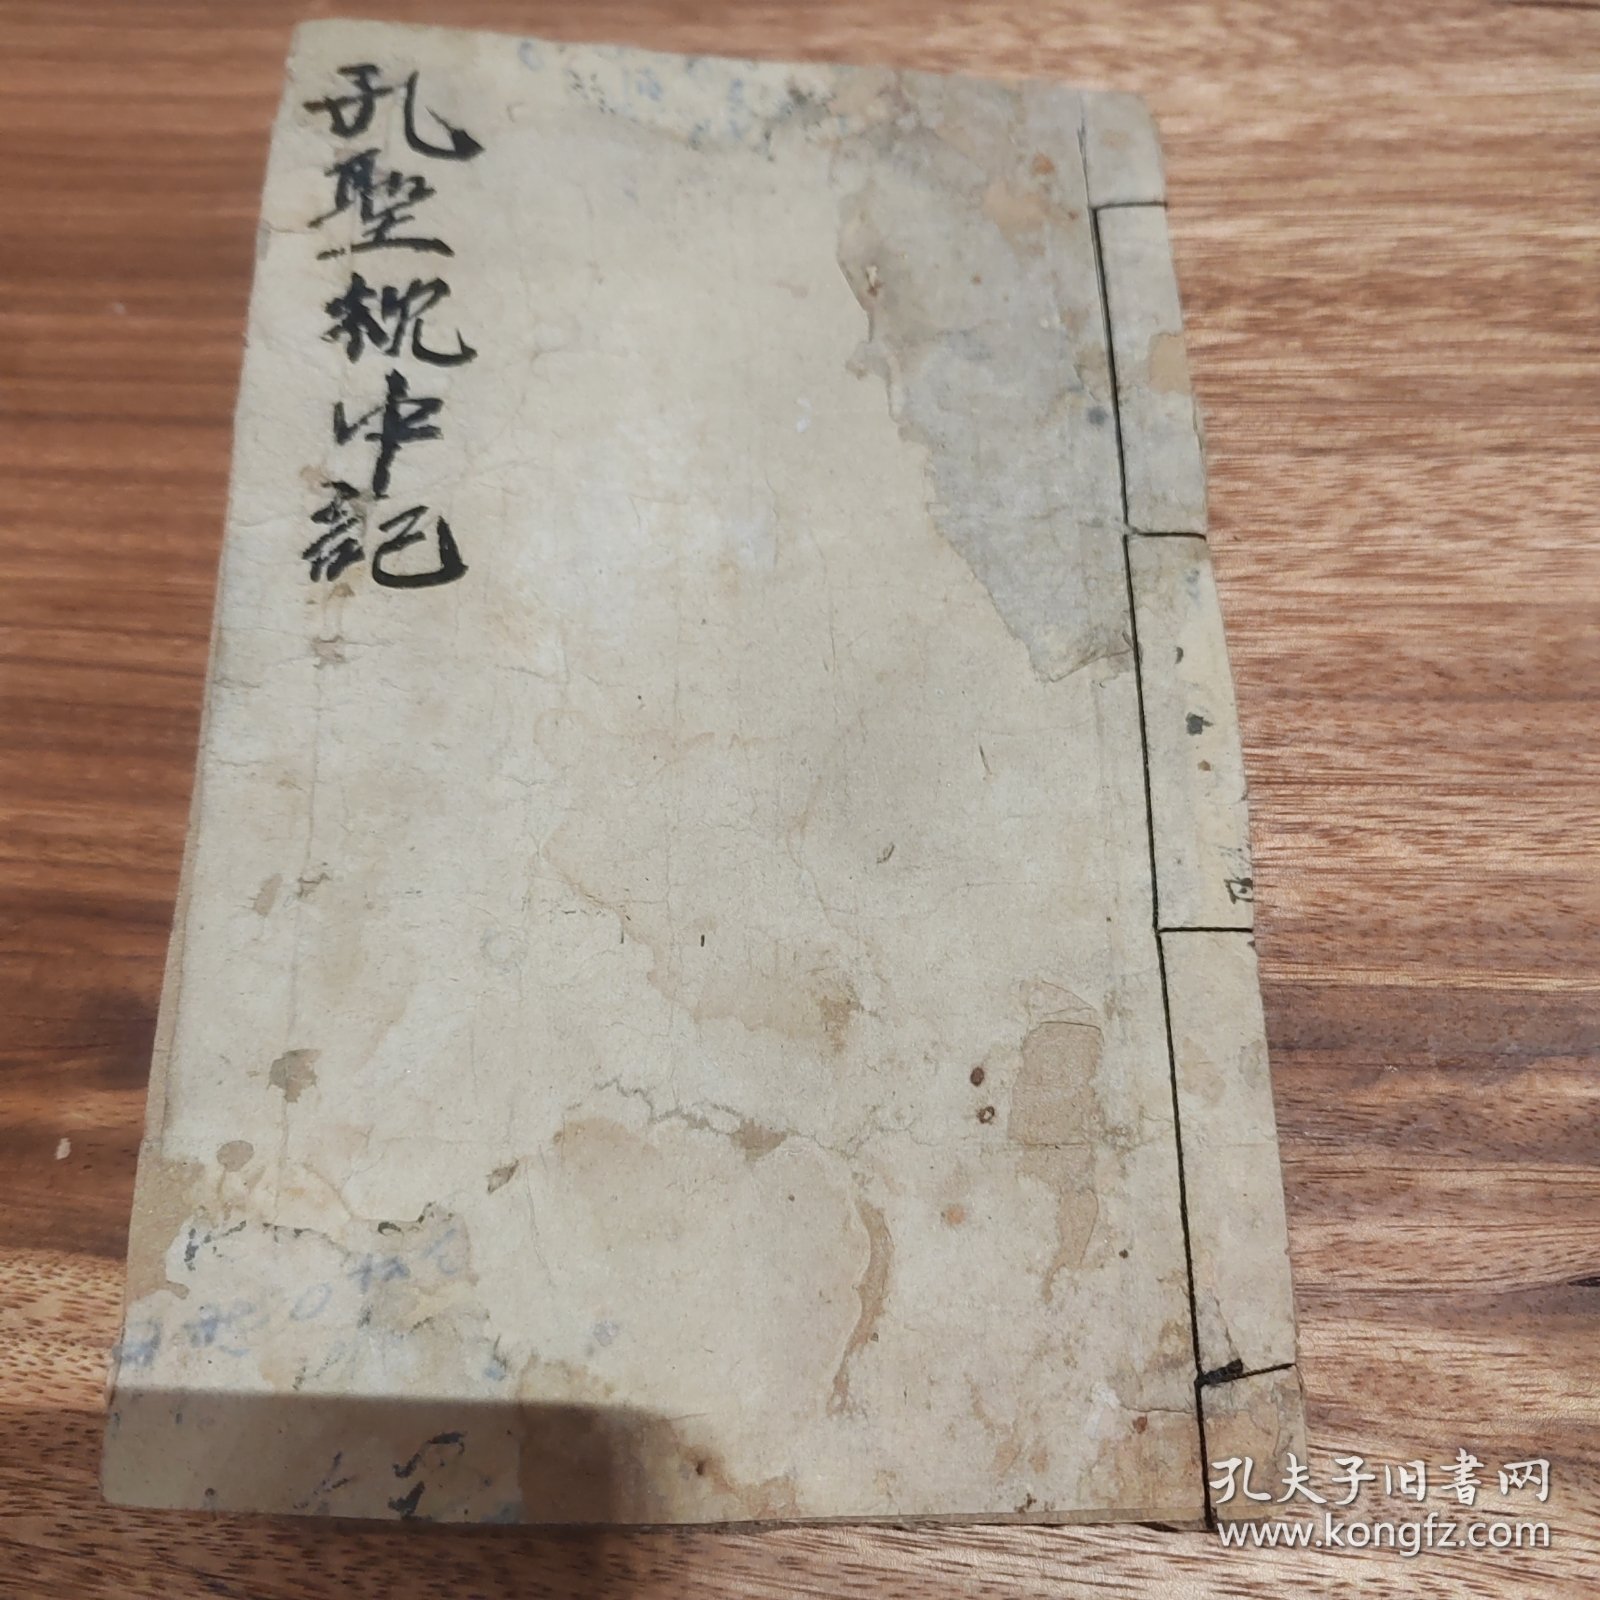 孔聖枕中記
孔夫子旧书网
www.kongfz.com